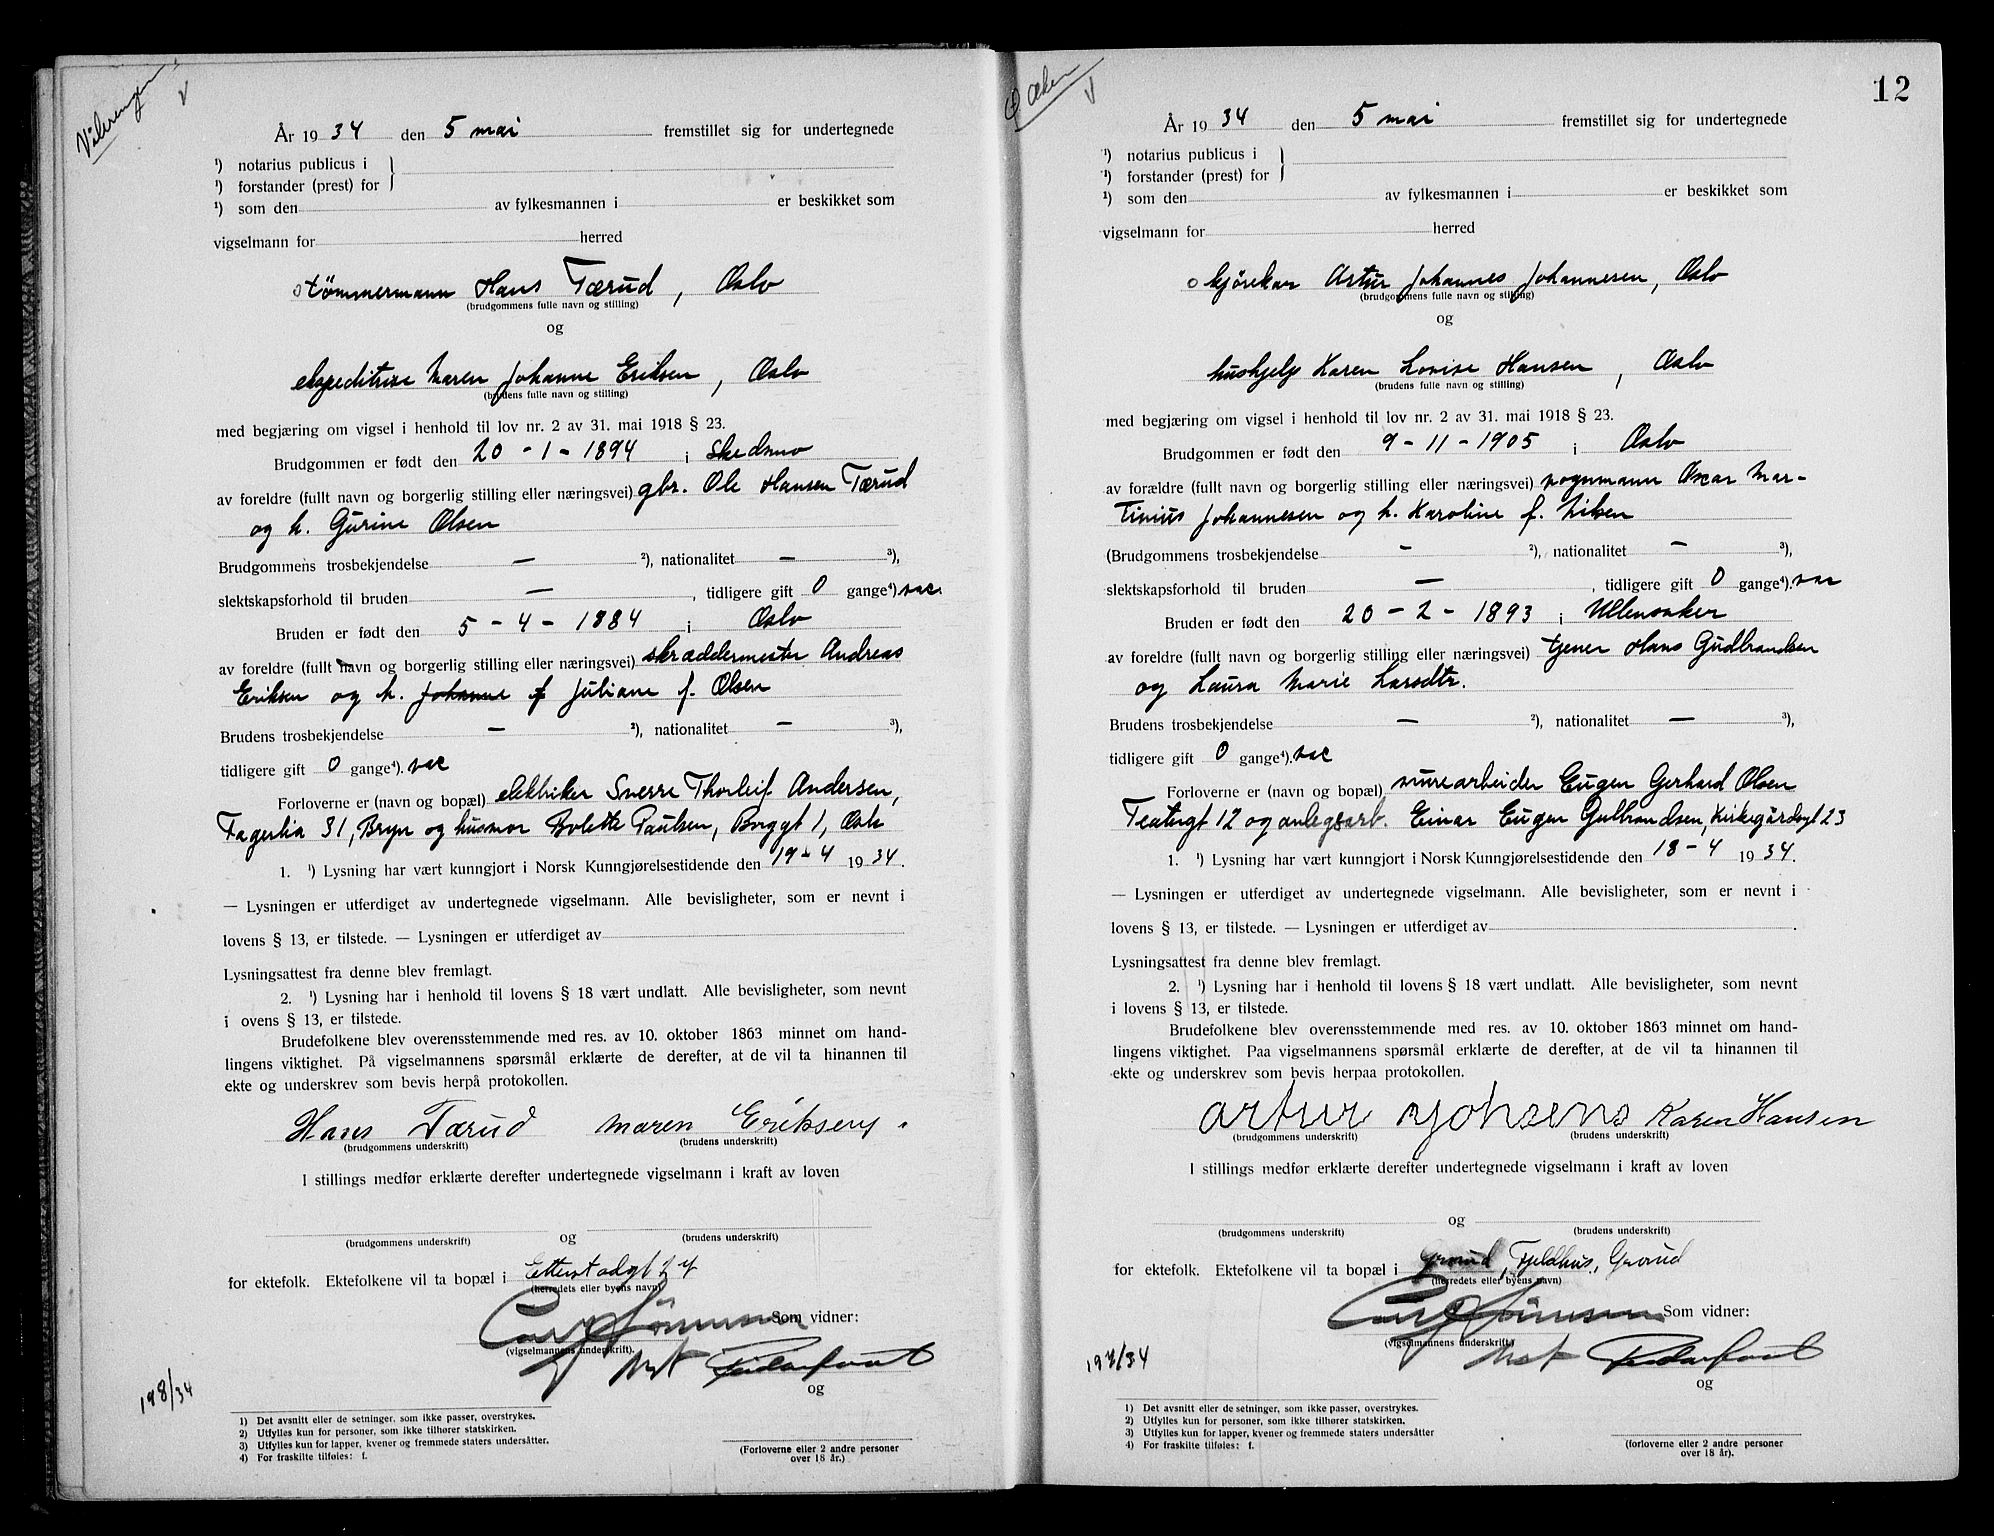 Vålerengen
År 1934 den 5 mai fremstillet sig for undertegnede
¹) notarius publicus i }
¹) forstander (prest) for }
¹) som den av fylkesmannen i er beskikket som
vigselmann for herred
tømmermann Hans Tærud, Oslo
(brudgommens fulle navn og stilling)
og
ekspeditrise Maren Johanne Eriksen, Oslo
(brudens fulle navn og stilling)
med begjæring om vigsel i henhold til lov nr. 2 av 31. mai 1918 § 23.
Brudgommen er født den 20 - 1 - 1894 i Skedsmo
av foreldre (fullt navn og borgerlig stilling eller næringsvei) gbr. Ole Hansen Tærud
og h. Gurine Olsen
Brudgommens trosbekjendelse — ²), nationalitet — ³),
slektskapsforhold til bruden — , tidligere gift 0 gange⁴). vac.
Bruden er født den 5 - 4 - 1884 i Oslo
av foreldre (fullt navn og borgerlig stilling eller næringsvei) skræddermester Andreas
Eriksen og h. Johanne f Juliane f. Olsen
Brudens trosbekjendelse — ²), nationalitet — ³),
tidligere gift 0 gange⁴). vac
Forloverne er (navn og bopæl) elektriker Sverre Thorleif Andersen,
Fagerlia 31, Bryn og husmor Bolette Paulsen, Borggt 1, Oslo
1. ¹) Lysning har vært kunngjort i Norsk Kunngjørelsestidende den 19 - 4 1934.
— Lysningen er utferdiget av undertegnede vigselmann. Alle bevisligheter, som er nevnt i
lovens § 13, er tilstede. — Lysningen er utferdiget av
Lysningsattest fra denne blev fremlagt.
2. ¹) Lysning har i henhold til lovens § 18 vært undlatt. Alle bevisligheter, som nevnt
i ovens § 13, er tilstede.
Brudefolkene blev overensstemmende med res. av 10. oktober 1863 minnet om hand-
lingens viktighet. På vigselmannens spørsmål erklærte de derefter, at de vil ta hinannen til
ekte og underskrev som bevis herpå protokollen.
Hans Tærud Maren Eriksen
(brudgommens underskrift) (brudens underskrift)
I stillings medfør erklærte derefter undertegnede vigselmann i kraft av loven
og
(brudgommens underskrift) (brudens underskrift)
for ektefolk. Ektefolkene vil ta bopæl i Etterstadgt 24
(herredets eller byens navn)
Som vidner:
(vigselmannens underskrift).
og
198/34
1) Det avsnitt eller de setninger, som ikke passer, overstrykes.
2) Utfylles kun for personer, som ikke tilhører statskirken.
3) Utfylles kun for lapper, kvener og fremmede staters undersåtter.
4) For fraskilte tilføies: f.
(Forloverne eller 2 andre personer
over 18 år.)
12
Ø Aker
År 1934 den 5 mai fremstillet sig for undertegnede
¹) notarius publicus i }
¹) forstander (prest) for }
¹) som den av fylkesmannen i er beskikket som
vigselmann for herred
kjørekar Artur Johannes Johannesen, Oslo
(brudgommens fulle navn og stilling)
og
hushjelp Karen Lovise Hansen, Oslo
(brudens fulle navn og stilling)
med begjæring om vigsel i henhold til lov nr. 2 av 31. mai 1918 § 23.
Brudgommen er født den 9 - 11 - 1905 i Oslo
av forældre (fullt navn og borgerlig stilling eller næringsvei) vognmann Oscar Mar-
tinius Johannesen og h. Karoline f.
(Brudgommens trosbekjendelse - ²), nationalitet - ³),
slektskapsforhold til bruden — , tidligere gift 0 gange⁴). vac
Bruden er født den 20 - 2 - 1893 i Ullensaker
av foreldre (fullt navn og borgerlig stilling eller næringsvei) tjener Hans Gudbrandsen
og Laura Marie Larsdtr.
Brudens trosbekjendelse — ²), nationalitet — ³),
tidligere gift 0 gange⁴). vac
Forloverne er (navn og bopæl) murearbeider Eugen Gerhard Olsen
Teatergt 12 og anlegsarb. Einar Eugen Gulbrandsen, Kirkegårdsgt 23
1. ¹) Lysning har vært kunngjort i Norsk Kunngjørelsestidende den 18 - 4 1934.
— Lysningen er utferdiget av undertegnede vigselmann. Alle bevisligheter, som er nevnt i
lovens § 13, er tilstede. — Lysningen er utferdiget av
Lysningsattest fra denne blev fremlagt.
2. ¹) Lysning har i henhold til lovens § 18 vært undlatt. Alle bevisligheter, som nevnt
i lovens § 13, er tilstede.
Brudefolkene blev overensstemmende med res. av 10. oktober 1863 minnet om hand-
lingens viktighet. Paa vigselmannens spørsmål erklærte de derefter, at de vil ta hinannen til
ekte og underskrev som bevis herpaa protokollen.
Artur Johsens Karen Hansen
(brudgommens underskrift) (brudens underskrift)
I stillings medfør erklærte derefter undertegnede vigselmann i kraft av loven
og
(brudgommens underskrift) (brudens underskrift)
for ektefolk. Ektefolkene vil ta bopæl i Grorud, Fjeldhus, Grorud
(herredets eller byens navn)
Som vidner:
(vigselmannens underskrift)
og
197/34
1) Det avsnitt eller de setninger, som ikke passer, overstrykes.
2) Utfylles kun for personer, som ikke tilhører statskirken.
3) Utfylles kun for lapper, kvener og fremmede staters undersåtter
4) For fraskilte tilføies: f.
(forloverne eller 2 andre personer
over 18 år).